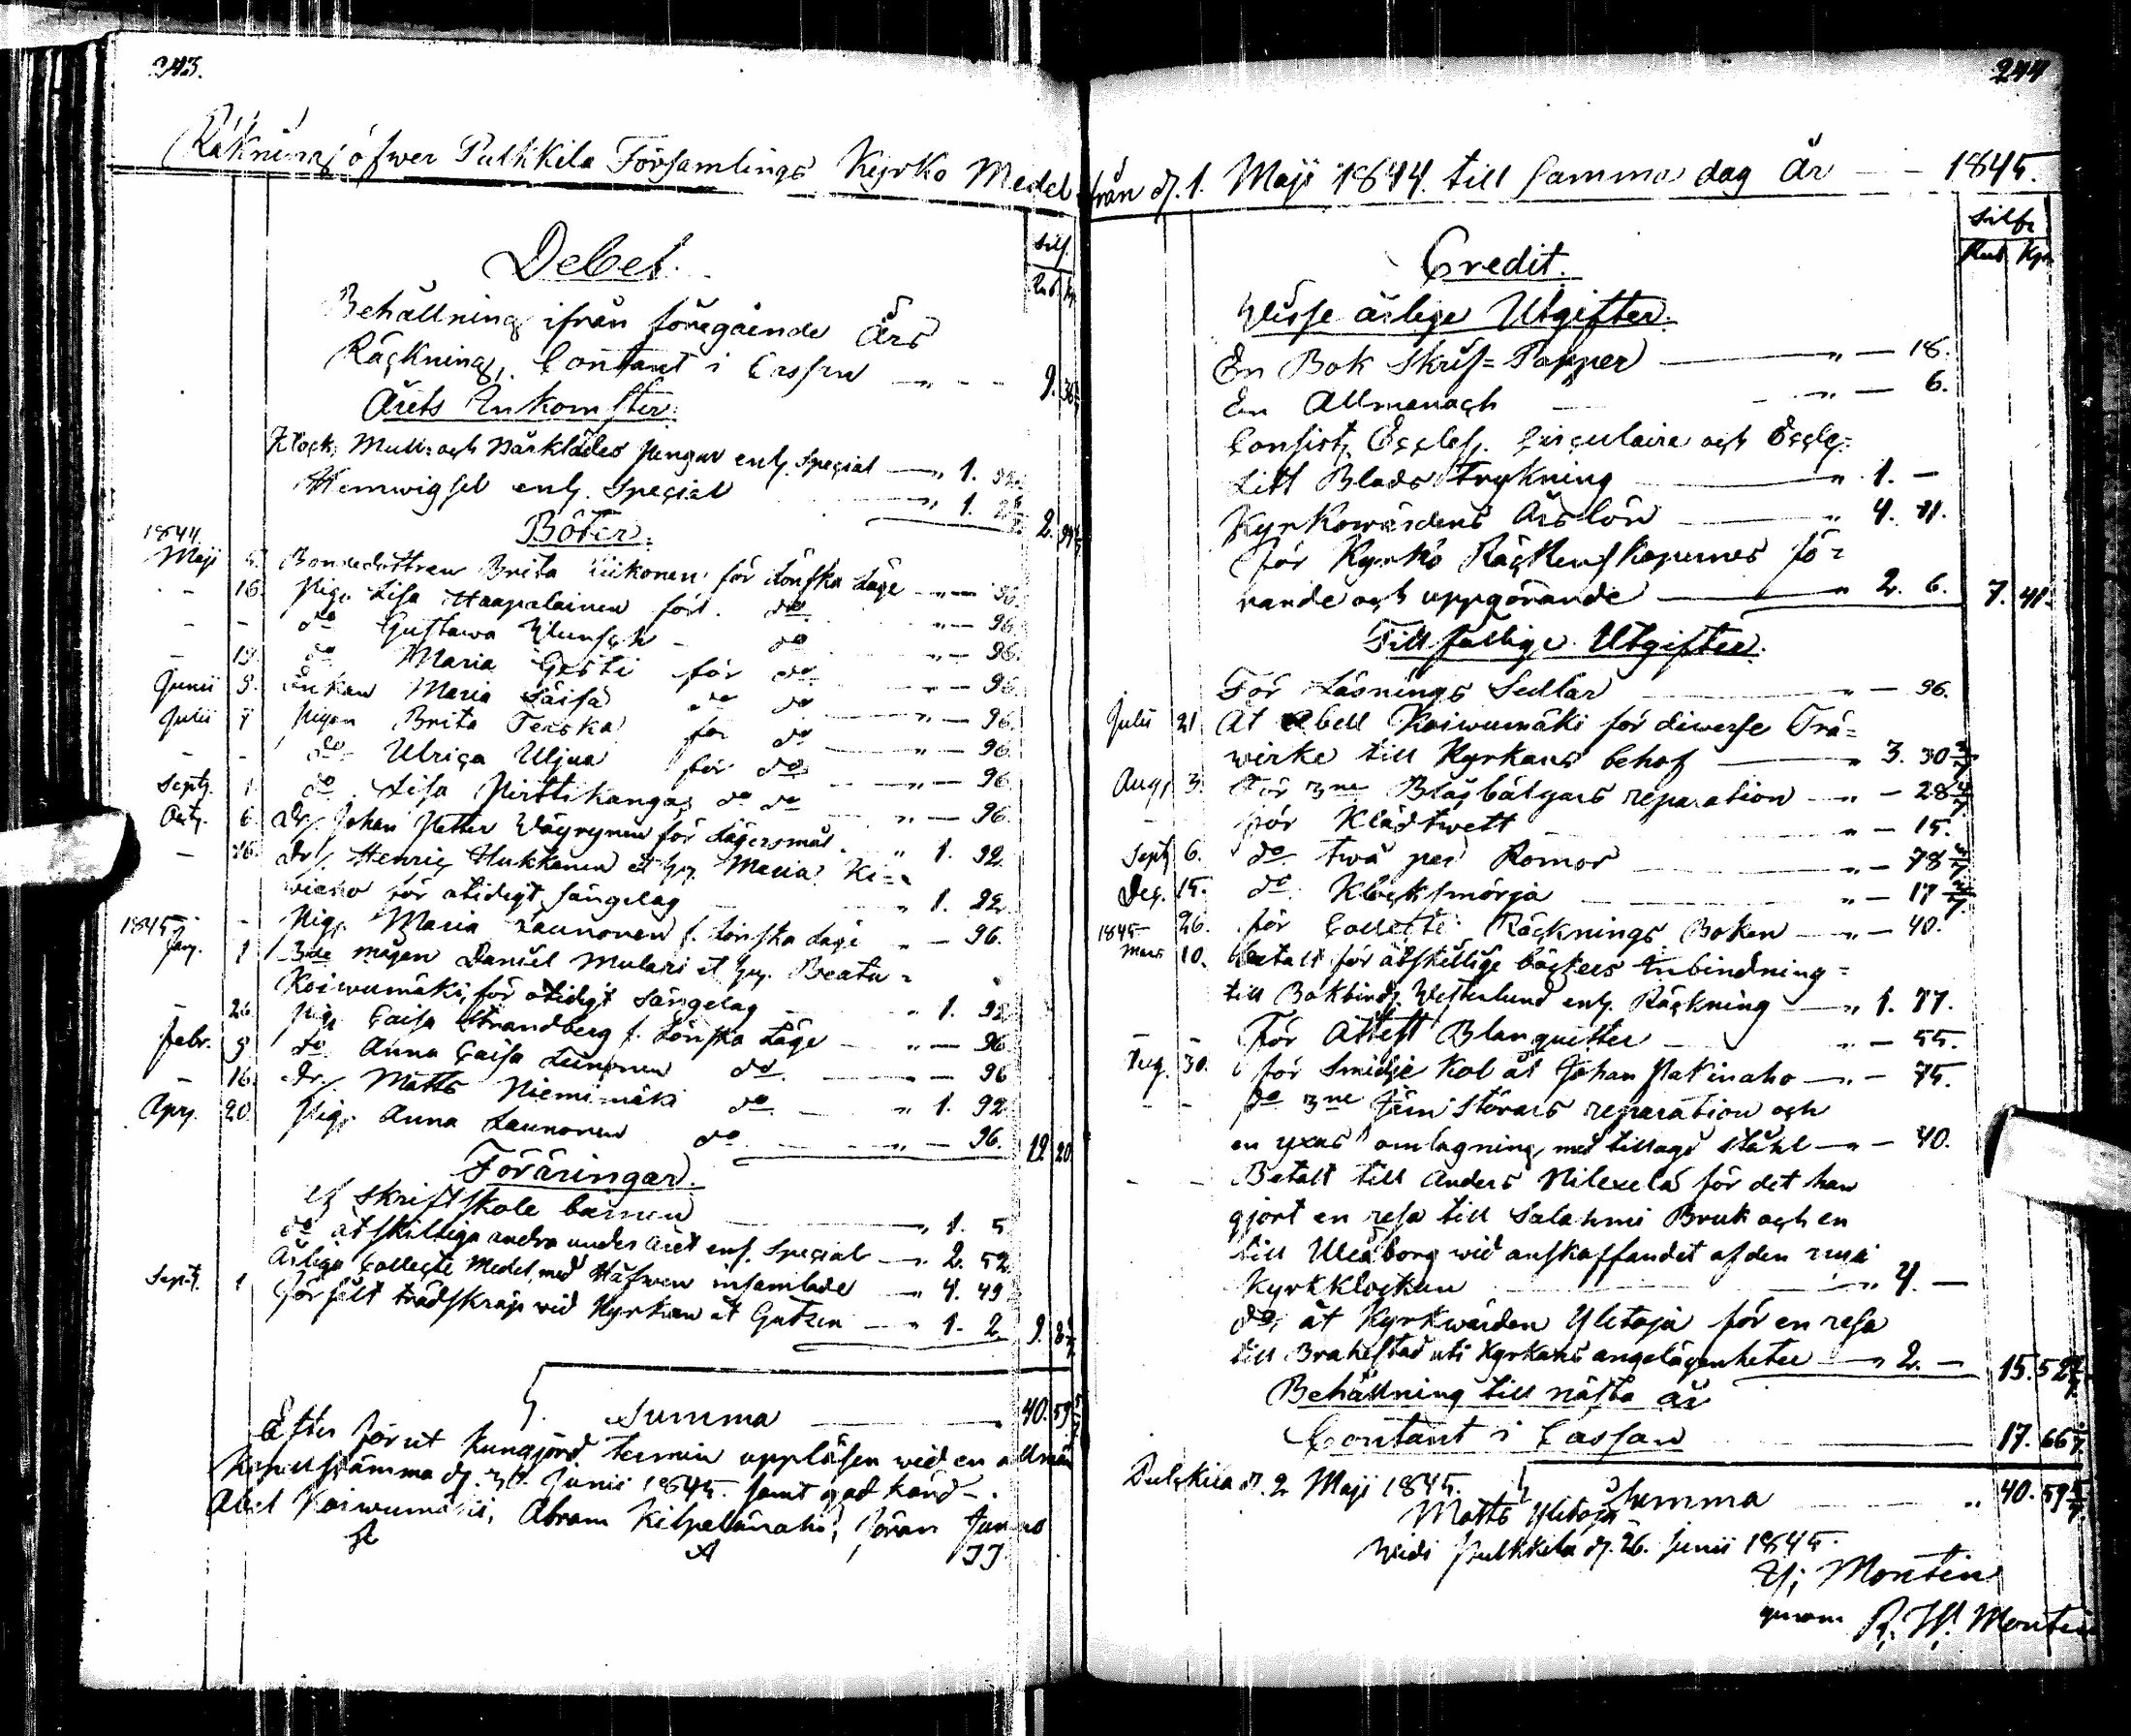 243.
Räkning öfwer Pulkkila Församlings Kyrko Medel
Debet.
Silf.
Rub. Kp
Behållning ifrån föregående Års
Räckning, Contant i Cassan — " — 9. 36
Årets Inkomster.
Klock, Mull- och Bårklädes pengar enl. Special — " 1.
Hemwigsel enl. Special — " 1. 2.
Böter.
1844.
Maji 5. Bondedottren Brita Tiikonen för Lönska Läge — " — 96.
- 16. Pig. Lisa Haapalainen för do " — 96.
- - do Gustawa Wunsch - do " — 96.
- 19. do Maria Gesti för do " — 96.
Junii 9. Enkan Maria Säisä do do " — 96.
Julii 7 Pigan Brita Terska för do " — 96.
- - do Ulrica Uljua för do " — 96.
Septr. 1. do Lisa Pirttikangas do do " — 96.
Octr. 6. Dr. Johan Petter Wäyrynen för Lägersmål " 1. 92.
- 16. Dr. Henric Hukkanen et Pig. Maria Ki=
wiaho för otidigt sängelag " 1. 92.
- - Pig. Maria Launonen f. Lönska Läge " — 96.
1845
Jan. 1 3de mågen Daniel Mulari et Pig. Beata
Koiwumäki, för otidigt sängelag " 1. 92
- 26. Pig. Caisa Strandberg f. Lönska Läge — " — 96
Febr. 9 do Anna Caisa Leinonen do — — 96
- 16. Dr. Matts Niemimäki do — " 1. 92
Apr. 20. Pig. Anna Launonen do — " — 96. 19 20
Föräringar.
Af Skriftskole barnen — " 1. 5
do åtskilliga andra under året enl. Special — " 2. 52.
Årliga Collecte Medel, med Håfwen insamlade — " 4. 49
Septr. 1 För sålt trädskräp wid Kyrkan åt Gutzen — " 1. 2. 9. 8
Summa — 40. 59
Efter förut kungjord termin uppläsen wid en allmän
Sockenstämma d. Junii 1845. samt godkänd.
Abel Koiwumäki, Abram Kilpelänaho, Jöran Junno
A JJ
244
från d. 1. Maji 1844. till samma dag År — 1845.
Silfr
Rub Kpr
Credit.
Wisse årlige Utgifter.
En Bok Skrif=Papper — " — 18.
En Allmanach — " — 6.
Consist. Eccles. Circulaire och Eccle=
Litt Blads Tryckning — " 1. —
Kyrkowärdens Årslön — " 4. 11.
för Kyrko Räckenskapernes fö=
rande och uppgörande — " 2. 6. 7. 41.
Tillfällige Utgifter.
För Läsnings Sedlar — " — 96.
Julii 21 At Abell Koiwumäki för diwerse Trä=
wirke till Kyrkans behof — " 3. 30 2/7
Aug. 3. För 3ne Blåsbälgars reparation — " — 28 4/7
- för Klädtwett — " — 15.
Sept 6. do twå par Romor — " — 78 4/7
Dec. 15. do Klocksmörja — " — 17 1/7
26. för Collecte Räcknings Boken — " — 40.
1845
Mars 10. betalt för åtskillige böckers Inbindning=
till Bokbind. Westerlund enl. Räckning — " 1. 77.
- - För Attest Blanquetter — " — 55.
Aug. 30. för Smidje Kol åt Johan Pakinaho — " — 75.
- - do 3ne Jern Störars reparation och
en yxas omlagning, med tillagd stähl — " — 40.
- - Betalt till Anders Nilexelä för det han
gjort en resa till Salahmi Bruk och en
till Uleåborg wid anskaffandet af den nya
Kyrkklockan — " 4. —
do, åt Kyrkwärden Ylitoja för en resa
till Brahestad uti Kyrkans angelägenheter — " 2. — 15. 52 2/7
Behållning till nästa år
Contant i Cassan — 17. 66
Pulckila d. 2 Maji 1845. Summa " 40. 59 5/7
Matts Ylitoja
Widi Pulkkila d. 26. Junii 1845.
Montin
genom R. W. Montin